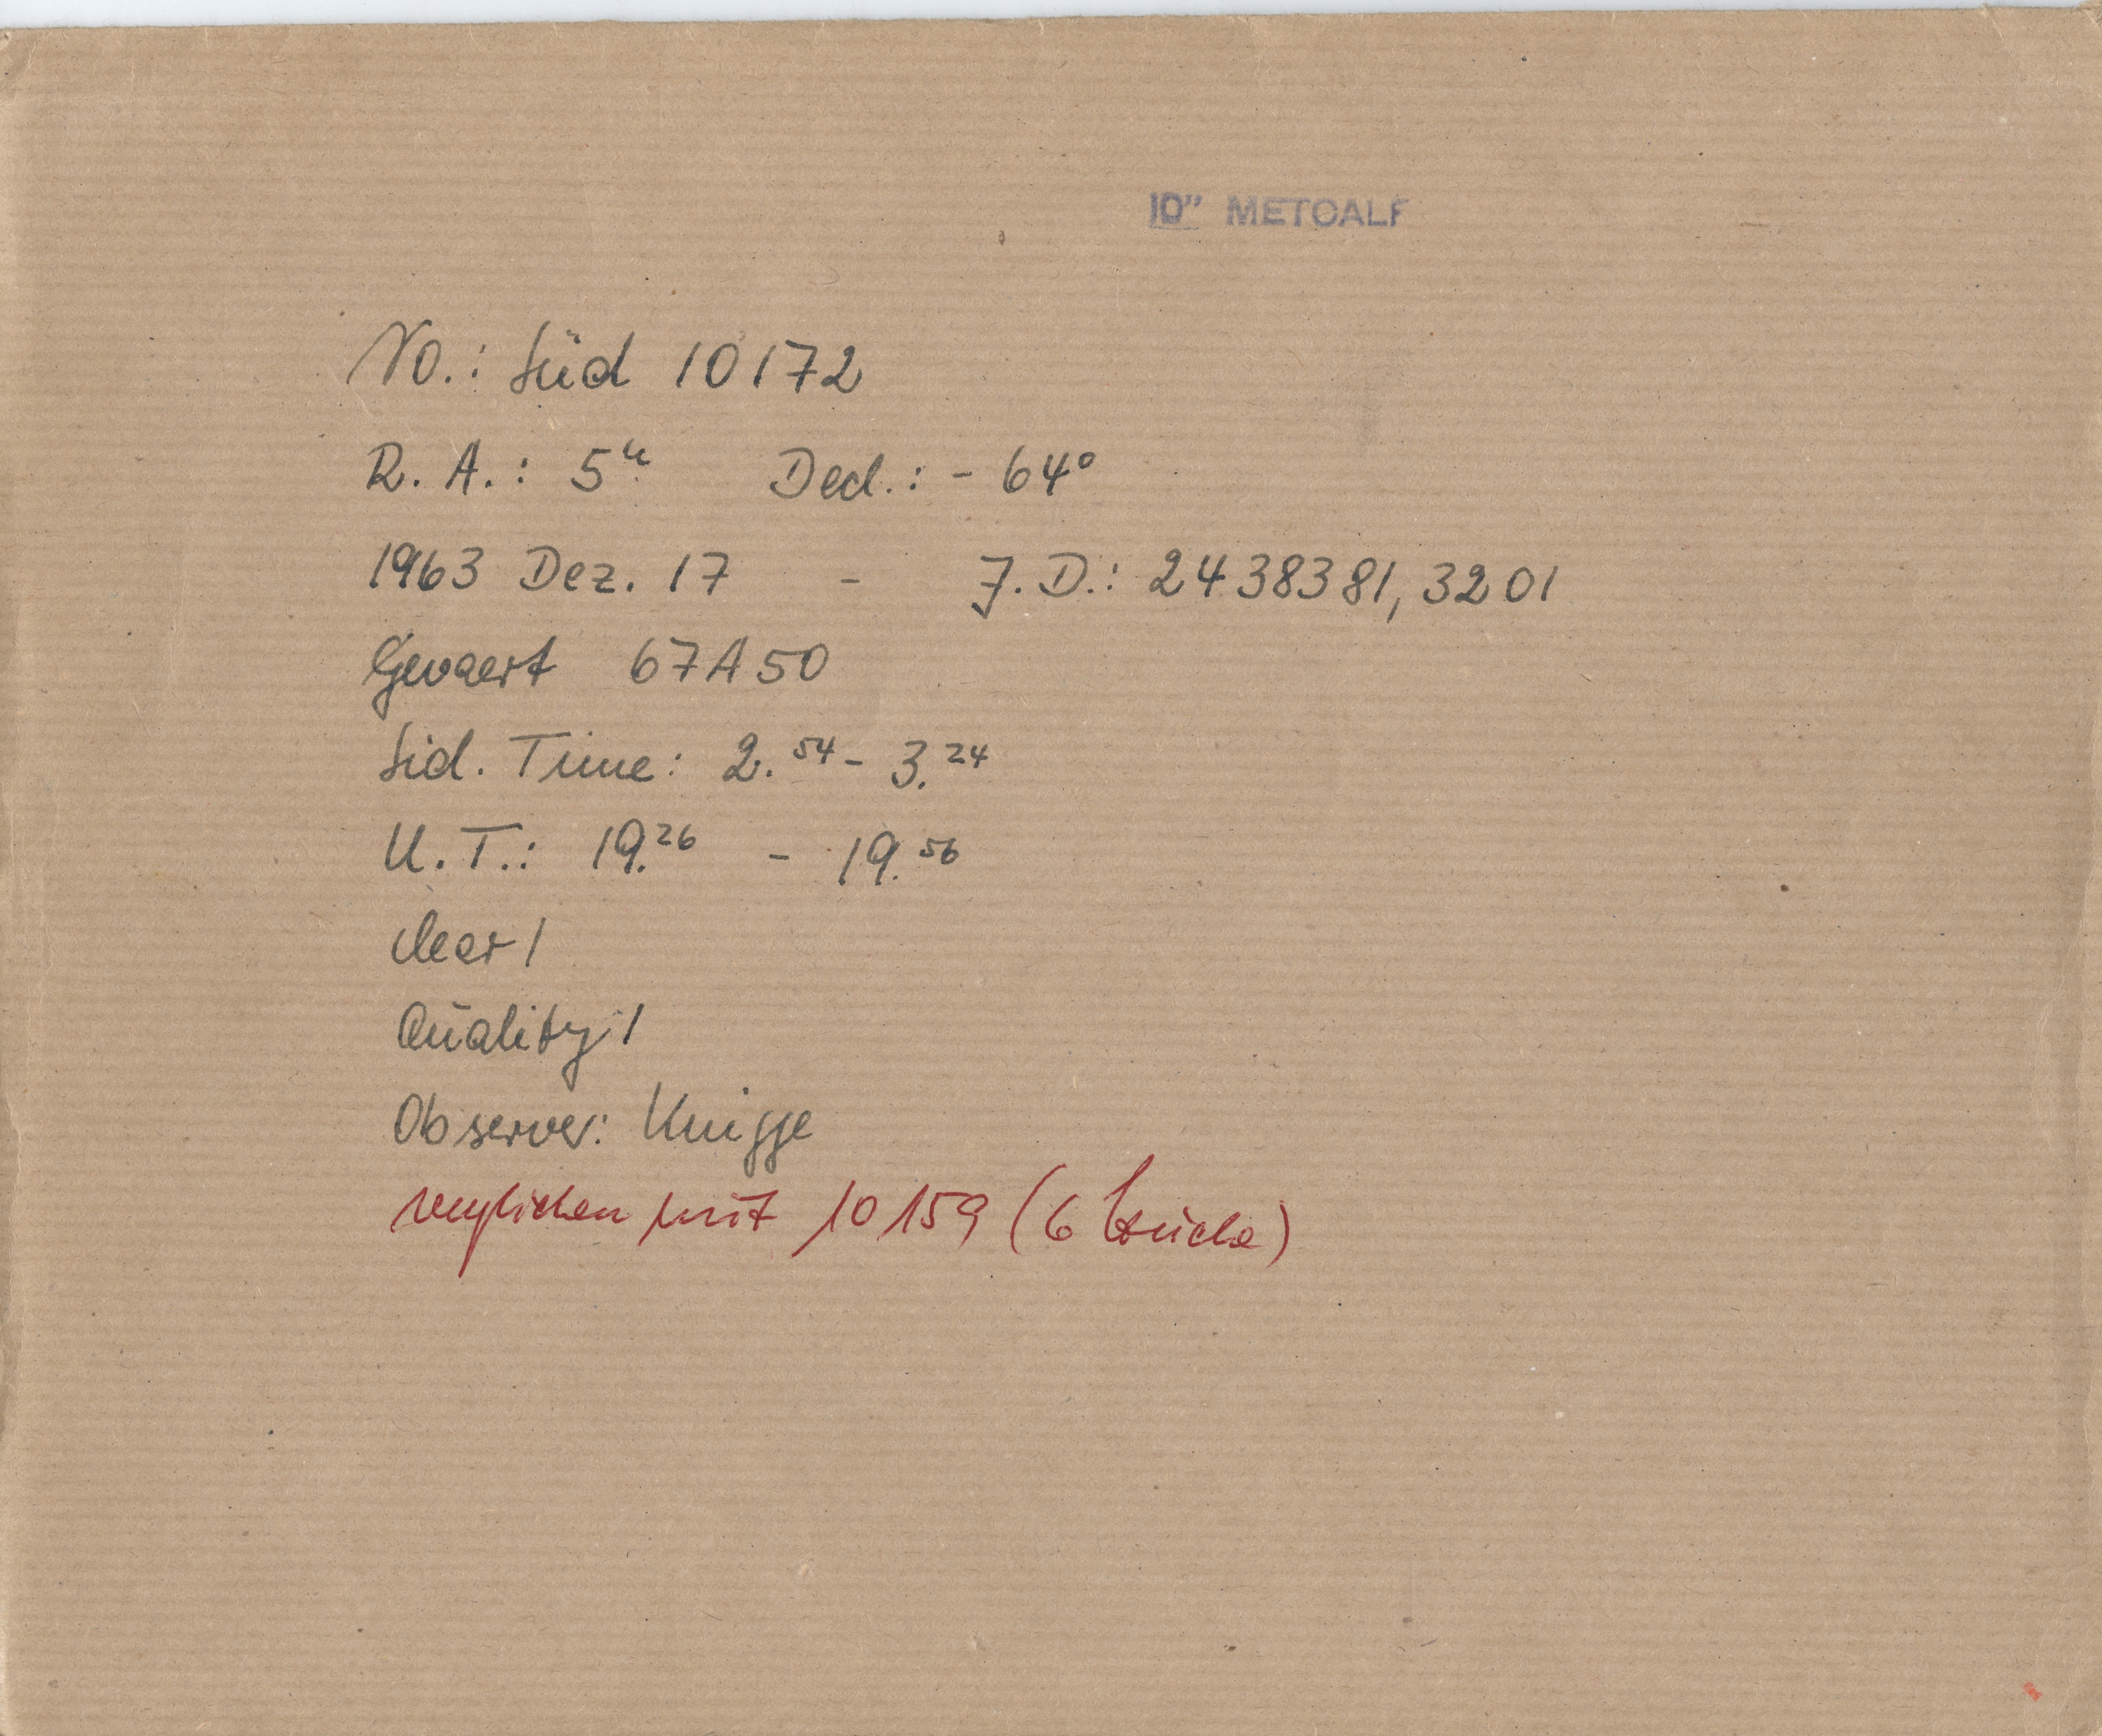 10" METCALF
No.: Süd 10172
R. A.: 5h Decl.: - 64°
1963 Dez. 17 - J.D.: 2438381,3201
Gevaert 67A50
Sid. Time: 2.54 - 3.24
U.T.: 19.26 - 19.56
clear 1
Quality: 1
Observer: Knigge
verglichen mit 10159 (6 Stücke)